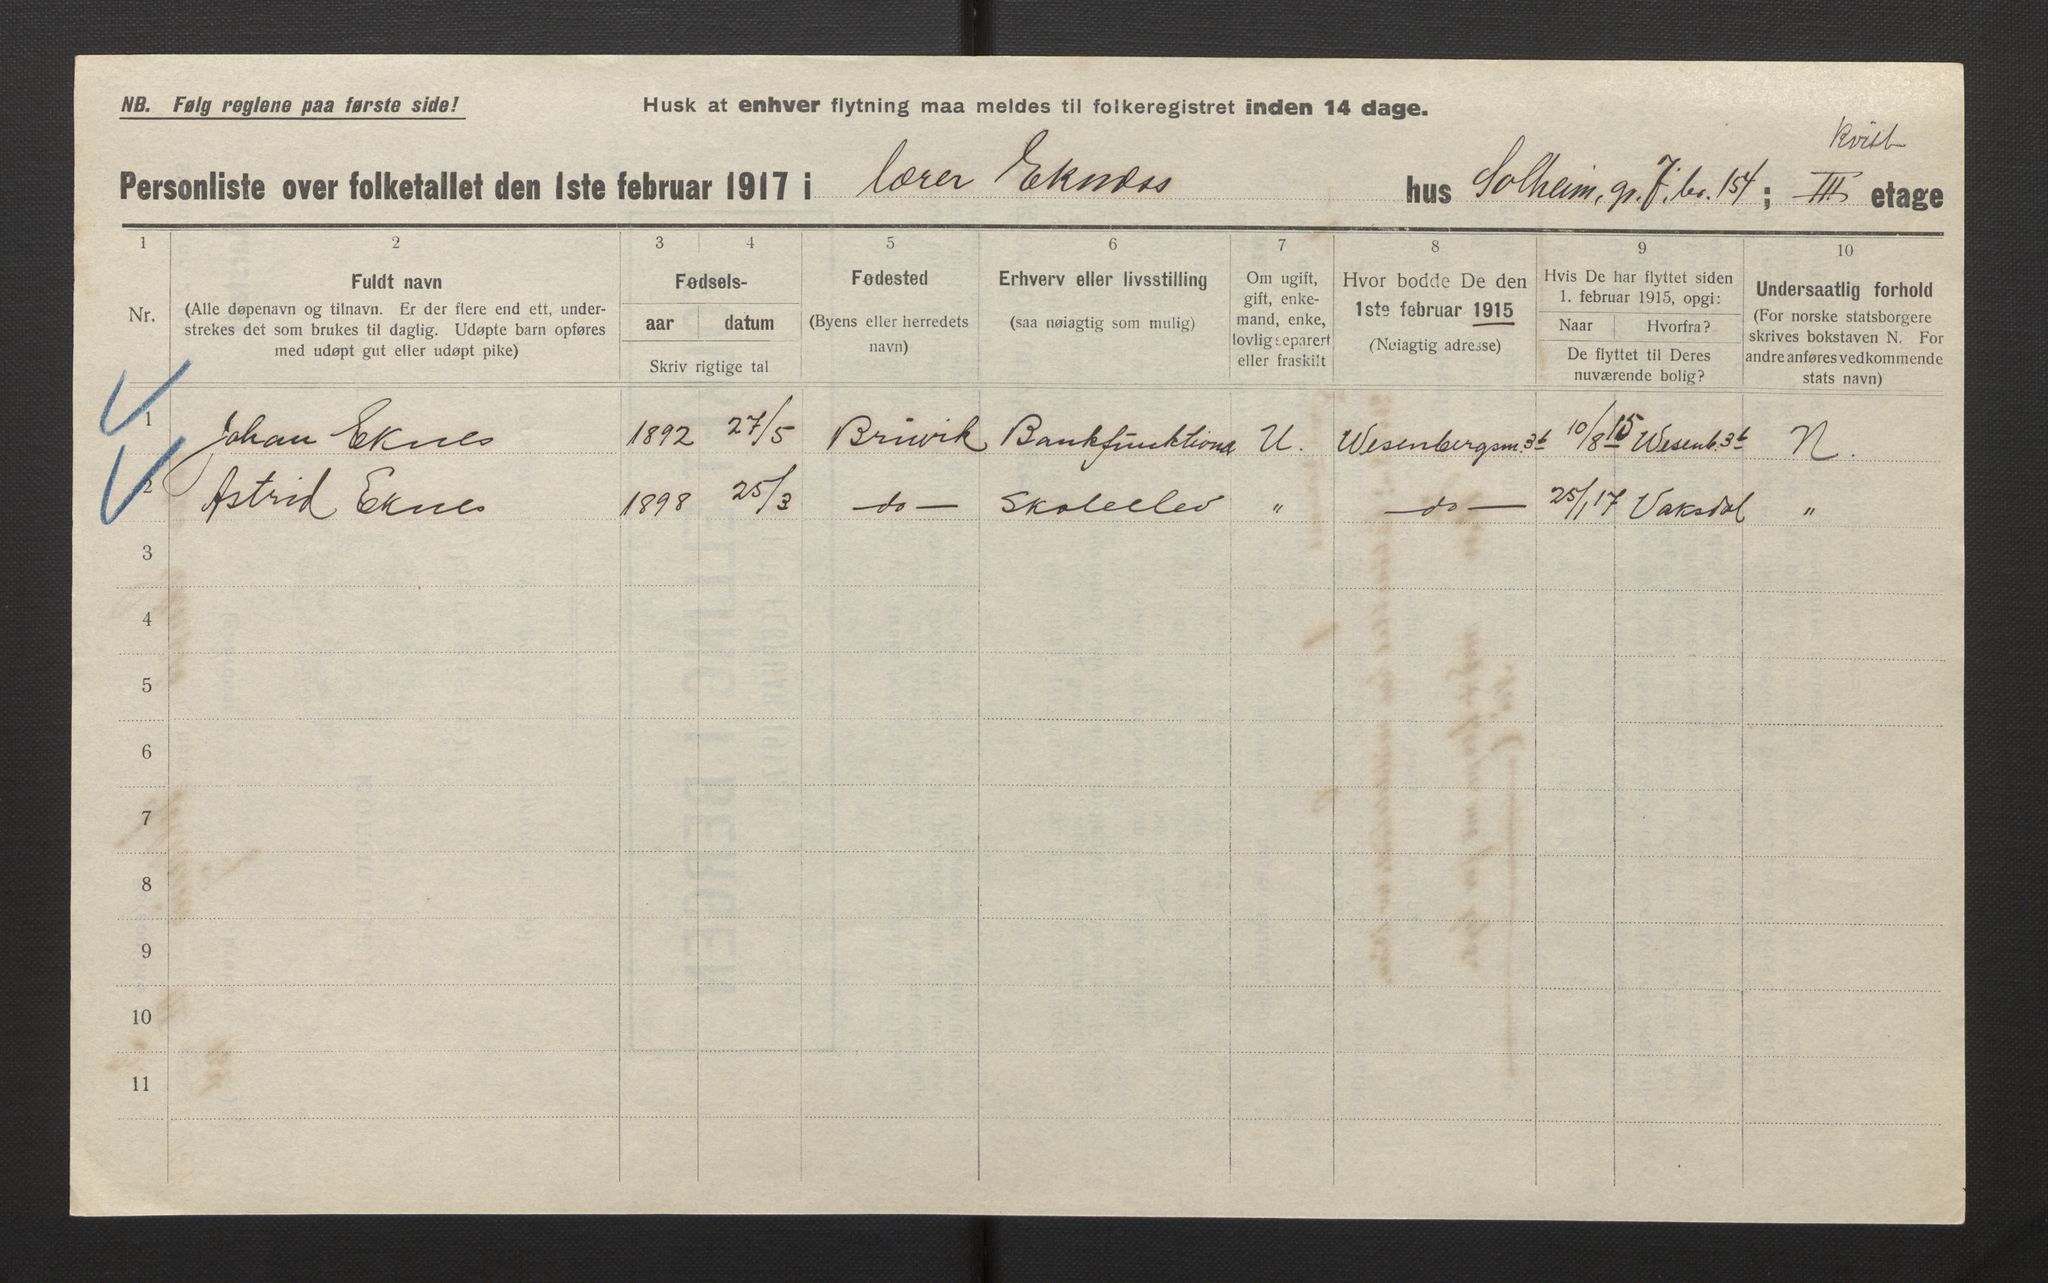 NB. Følg reglene paa første side!
Husk at enhver flytning maa meldes til folkeregistret inden 14 dage.
Kvist
Personliste over folketallet den 1ste februar 1917 i lærer Eknæss hus Solheim, gr. 7, br. 154; III etage
1 2 3 4 5 6 7 8 9 10
Nr.
Fuldt navn
(Alle døpenavn og tilnavn. Er der flere end ett, under-
strekes det som brukes til daglig. Udøpte barn opføres
med udøpt gut eller udøpt pike)
Fødsels-
aar datum
Skriv rigtige tal
Fødested
(Byens eller herredets
navn)
Erhverv eller livsstilling
(saa nøiagtig som mulig)
Om ugift,
gift, enke-
mand, enke,
lovlig separert
eller fraskilt
Hvor bodde De den
1ste februar 1915
(Nøiagtig adresse)
Hvis De har flyttet siden
1. februar 1915, opgi:
Naar Hvorfra?
De flyttet til Deres
nuværende bolig?
Undersaatlig forhold
(For norske statsborgere
skrives bokstaven N. For
andre anføres vedkommende
stats navn)
1 Johan Eknes 1892 27/5 Bruvik Bankfunktionær U. Wesenbergsm. 3b 10/8 15 Wesenb. 3b N.
2 Astrid Eknes 1898 25/3 —do— Skoleelev " —do— 25/1 17 Vaksdal "
3
4
5
6
7
8
9
10
11